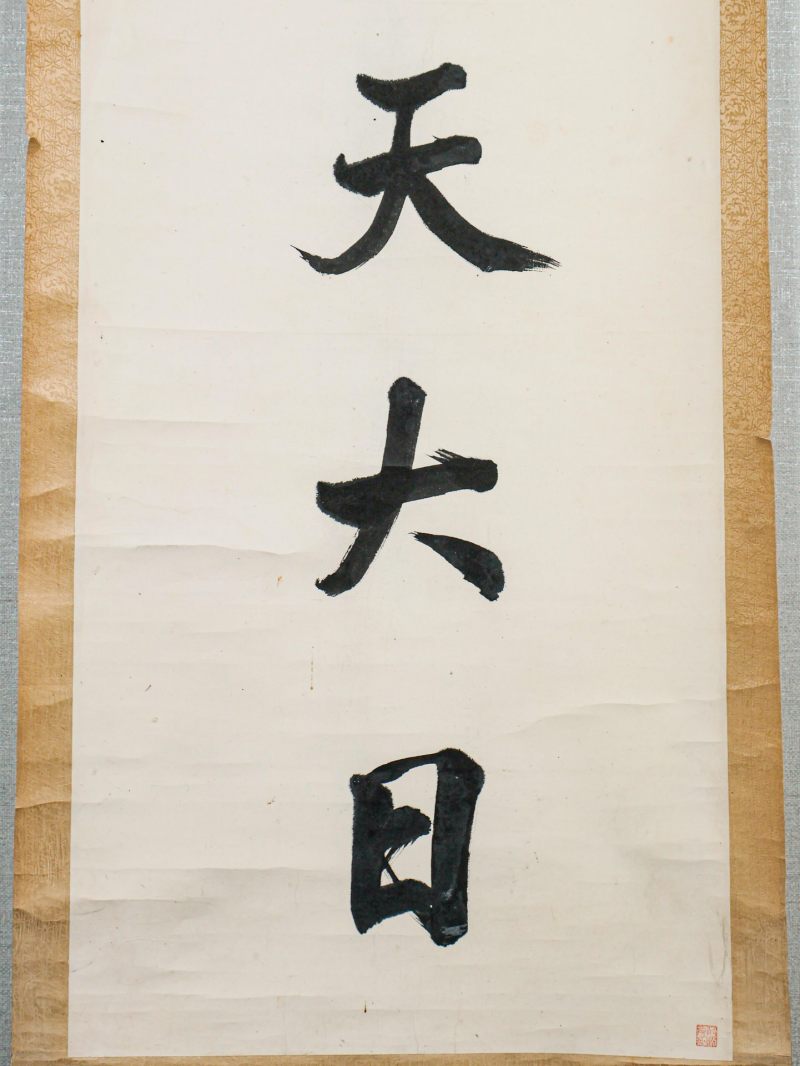 天
大
日